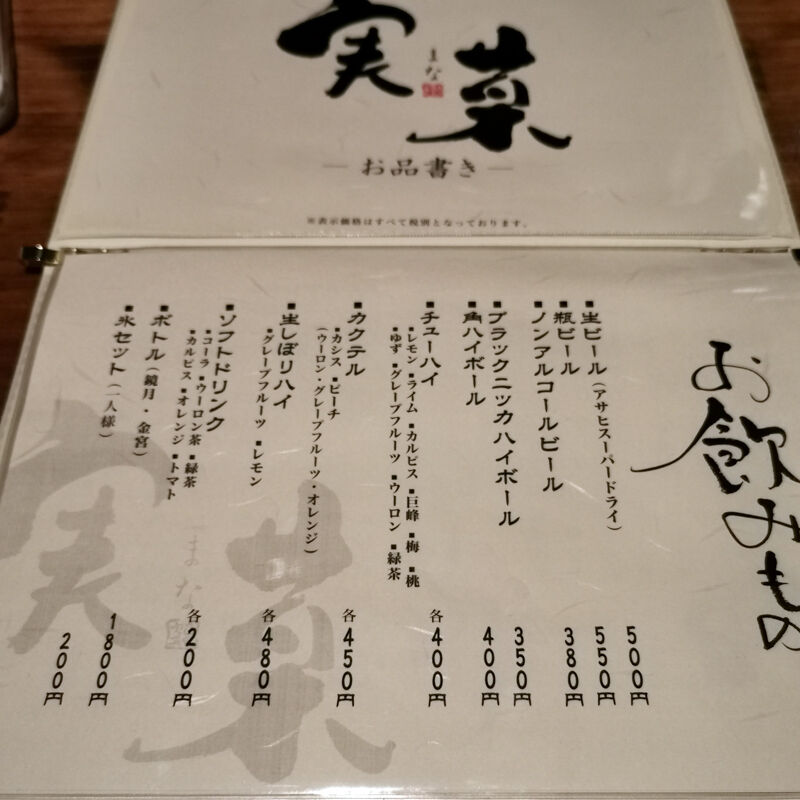 実菜
まな
お品書き
※表示価格はすべて税別となっております。
お飲みもの
■生ビール(アサヒスーパードライ) 500円
■瓶ビール 550円
■ノンアルコールビール 380円
■ブラックニッカハイボール 350円
■角ハイボール 400円
■チューハイ 各400円
■レモン ■ライム ■カルピス ■巨峰 ■梅 ■桃
■ゆず ■グレープフルーツ ■ウーロン ■緑茶
■カクテル 各450円
■カシス ■ピーチ
(ウーロン・グレープフルーツ・オレンジ)
■生しぼりハイ 各480円
■グレープフルーツ ■レモン
■ソフトドリンク 各200円
■コーラ ■ウーロン茶 ■緑茶
■カルピス ■オレンジ ■トマト
■ボトル(鏡月・金宮) 1800円
■氷セット(一人様) 200円
実菜
まな